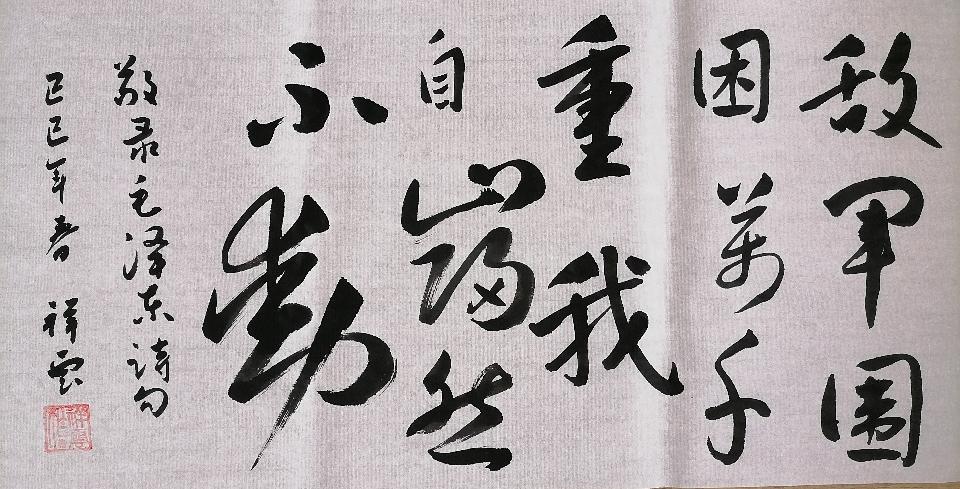 敌军围
困万千
重我
自岿然
不动
敬录毛泽东诗句
己巳年春 祥云